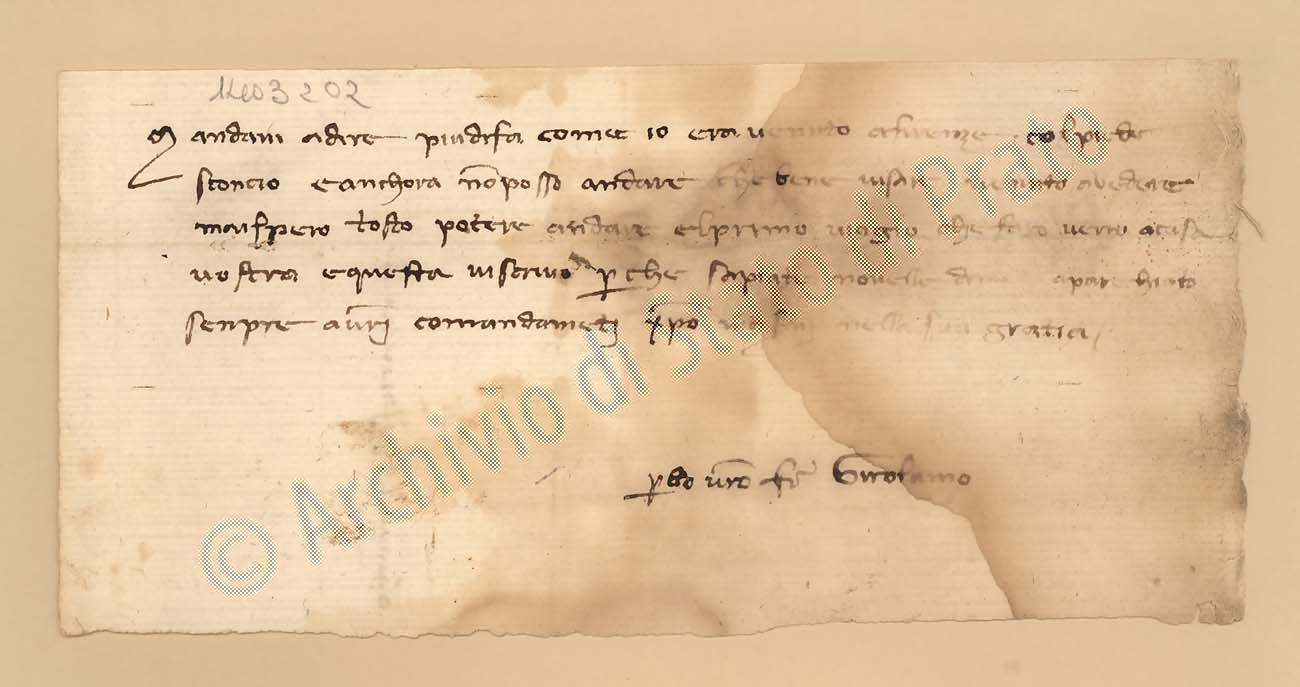 1403202
Mandavi a dire piu di fa come io era venuto a firenze col piede
sconcio e anchora nō posso andare che bene visarei venuto a vedere
ma isspero tosto potere andare el primo viagio che faro verro a casa
vostra e questa vi scrivo p che sapiate novelle di me aparechiato
senpre a vr̄i comandamēti xp̄o nella sua gratia /
p lo vr̄o fr̄ Girolamo
© Archivio di Stato di Prato